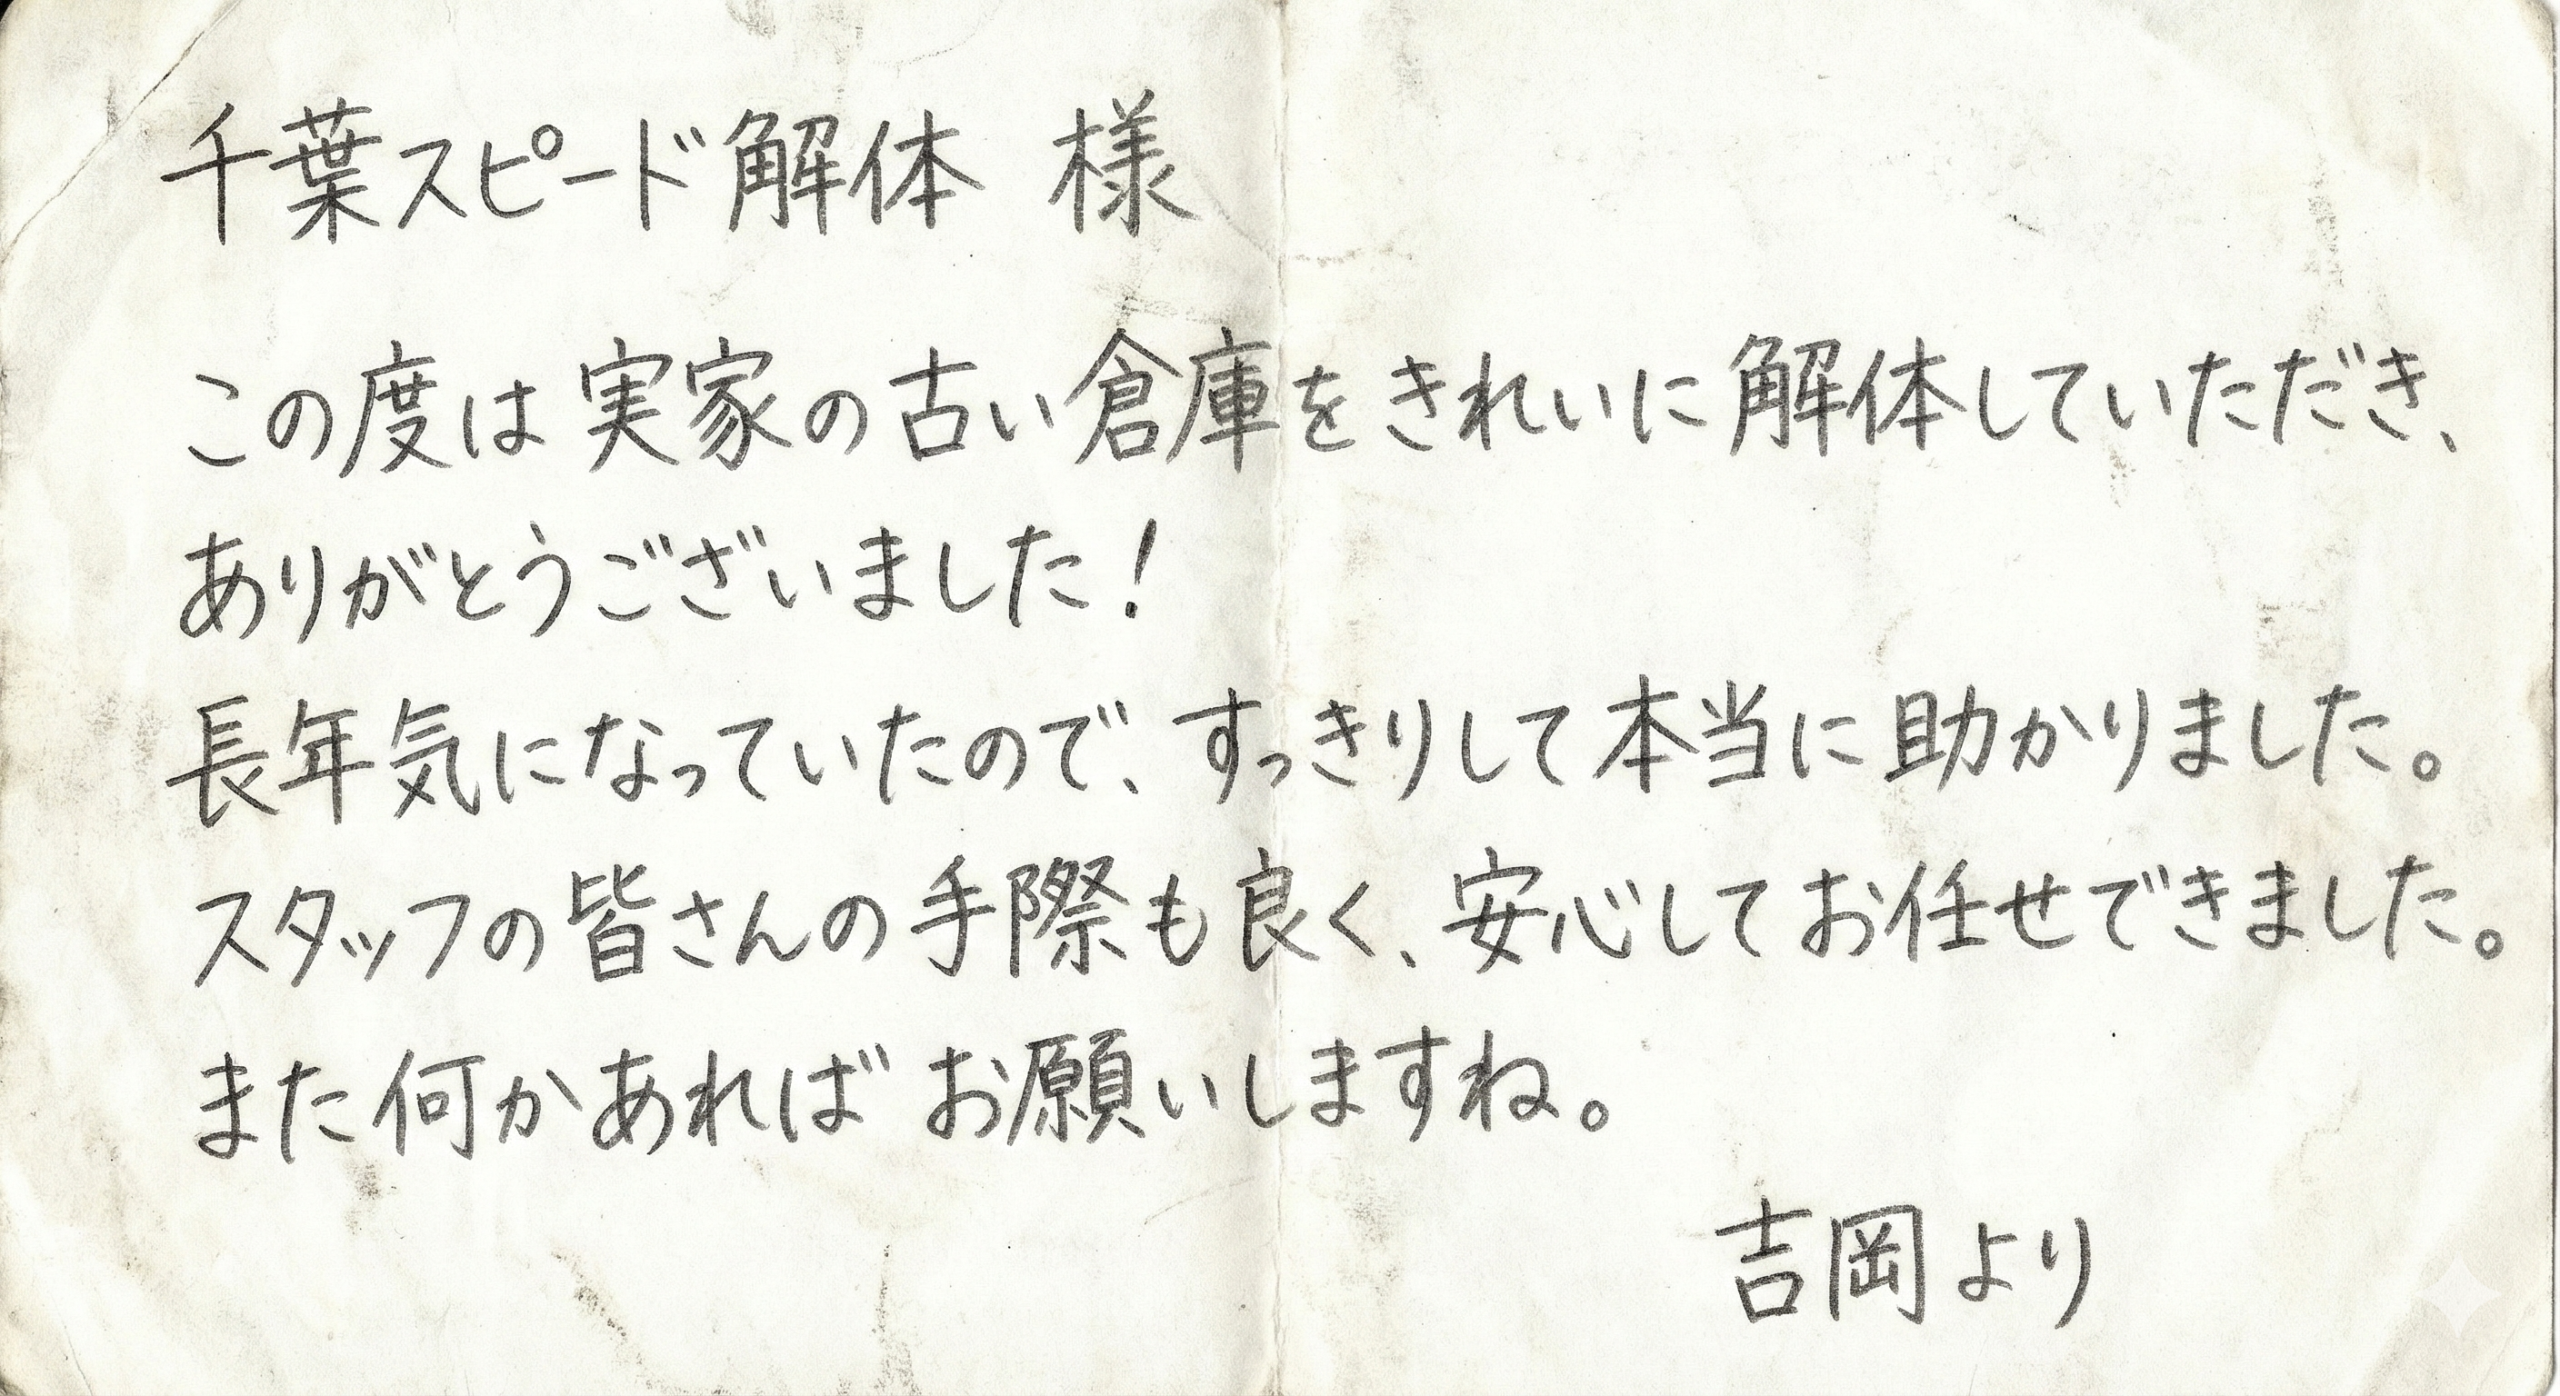 千葉スピード解体 様
この度は実家の古い倉庫をきれいに解体していただき、
ありがとうございました！
長年気になっていたので、すっきりして本当に助かりました。
スタッフの皆さんの手際も良く、安心してお任せできました。
また何かあればお願いしますね。
吉岡より